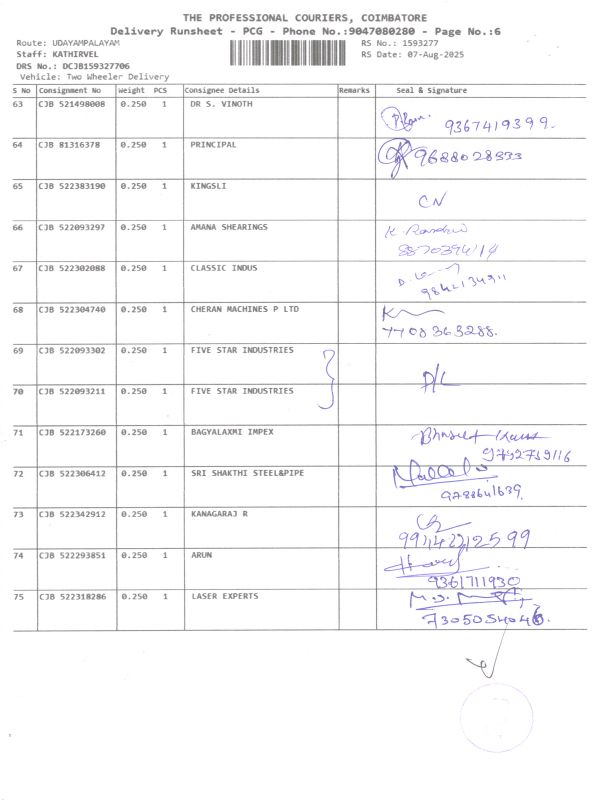 THE PROFESSIONAL COURIERS, COIMBATORE
Delivery Runsheet - PCG - Phone No.:9047080280 - Page No.:6
Route: UDAYAMPALAYAM RS No.: 1593277
Staff: KATHIRVEL RS Date: 07-Aug-2025
DRS No.: DCJB159327706
Vehicle: Two Wheeler Delivery
S No Consignment No Weight PCS Consignee Details Remarks Seal & Signature
63 CJB 521498008 0.250 1 DR S. VINOTH
9367419399.
64 CJB 81316378 0.250 1 PRINCIPAL
9688028333
65 CJB 522383190 0.250 1 KINGSLI
CN
66 CJB 522093297 0.250 1 AMANA SHEARINGS
8870394114
67 CJB 522302088 0.250 1 CLASSIC INDUS
9842134911
68 CJB 522304740 0.250 1 CHERAN MACHINES P LTD
7708363288.
69 CJB 522093302 0.250 1 FIVE STAR INDUSTRIES
D/L
70 CJB 522093211 0.250 1 FIVE STAR INDUSTRIES
71 CJB 522173260 0.250 1 BAGYALAXMI IMPEX
72 CJB 522306412 0.250 1 SRI SHAKTHI STEEL&PIPE
9788641639.
73 CJB 522342912 0.250 1 KANAGARAJ R
74 CJB 522293851 0.250 1 ARUN
9361711930
75 CJB 522318286 0.250 1 LASER EXPERTS
7305054046.